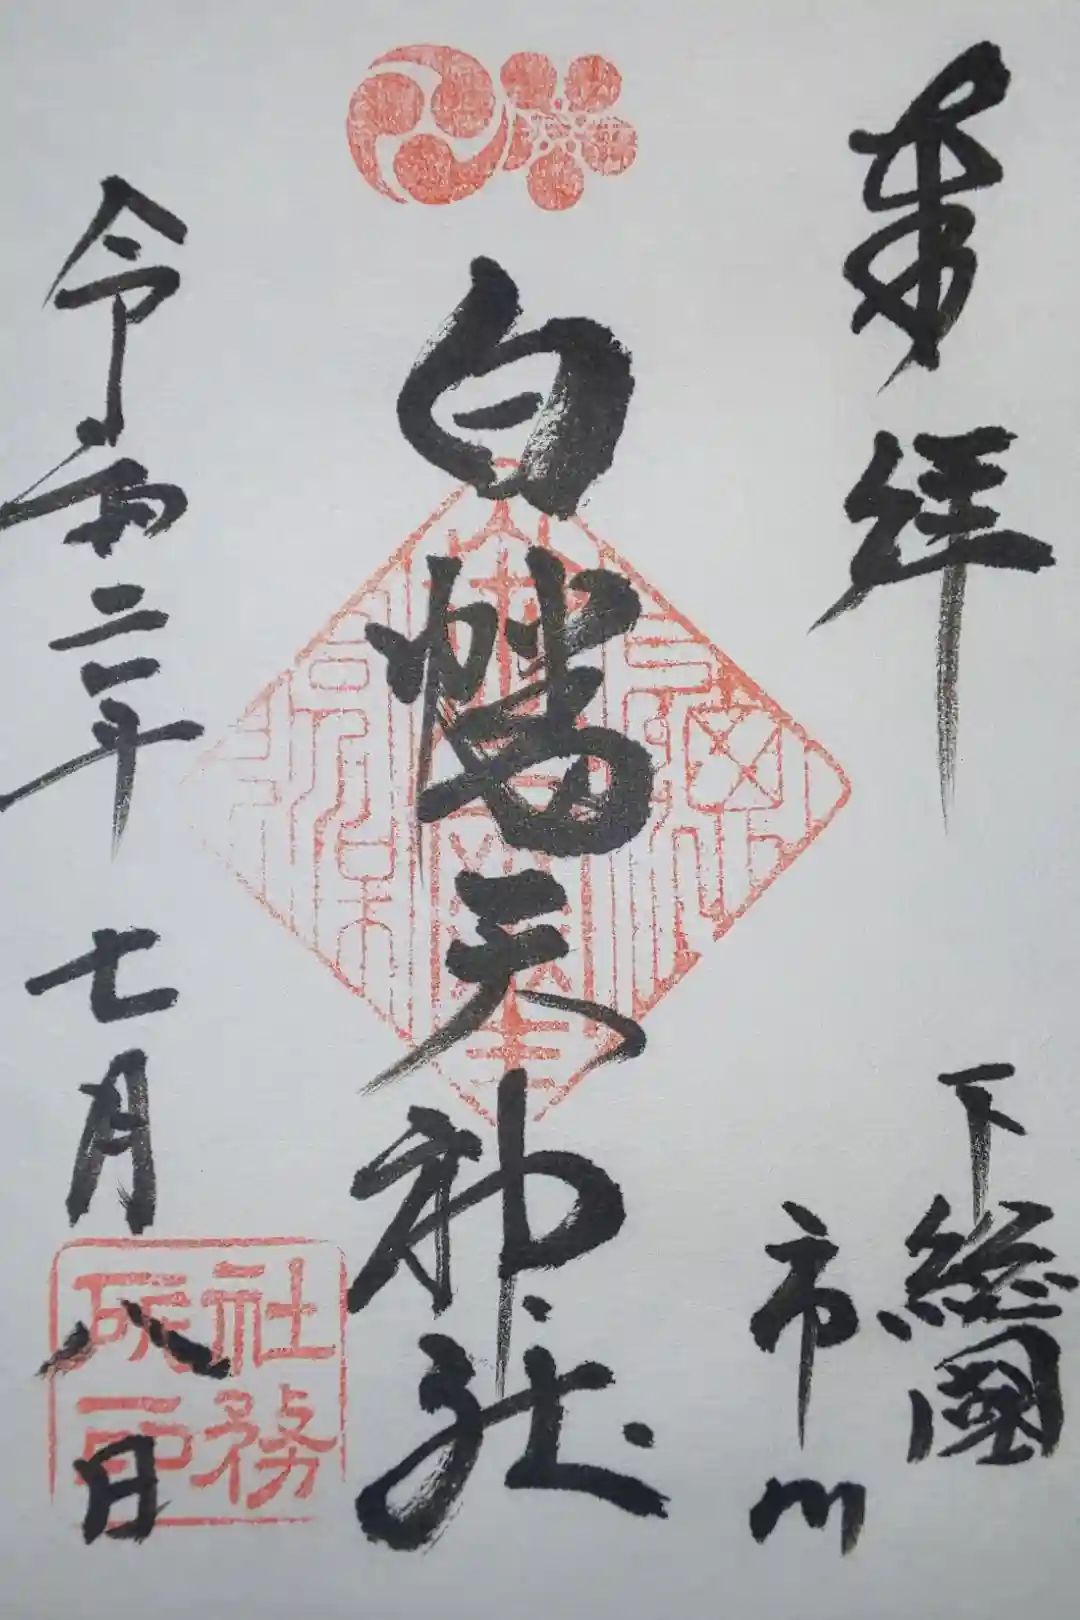 奉拝
下総國
市川
白幡天神社
令和二年
七月八日
社務